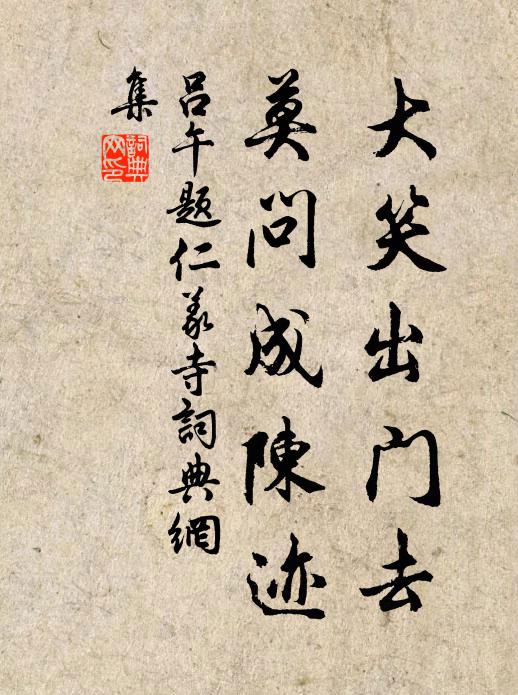 大笑出门去
莫问成陳迹
吕午题仁义寺詞典網
集
詞典
网印